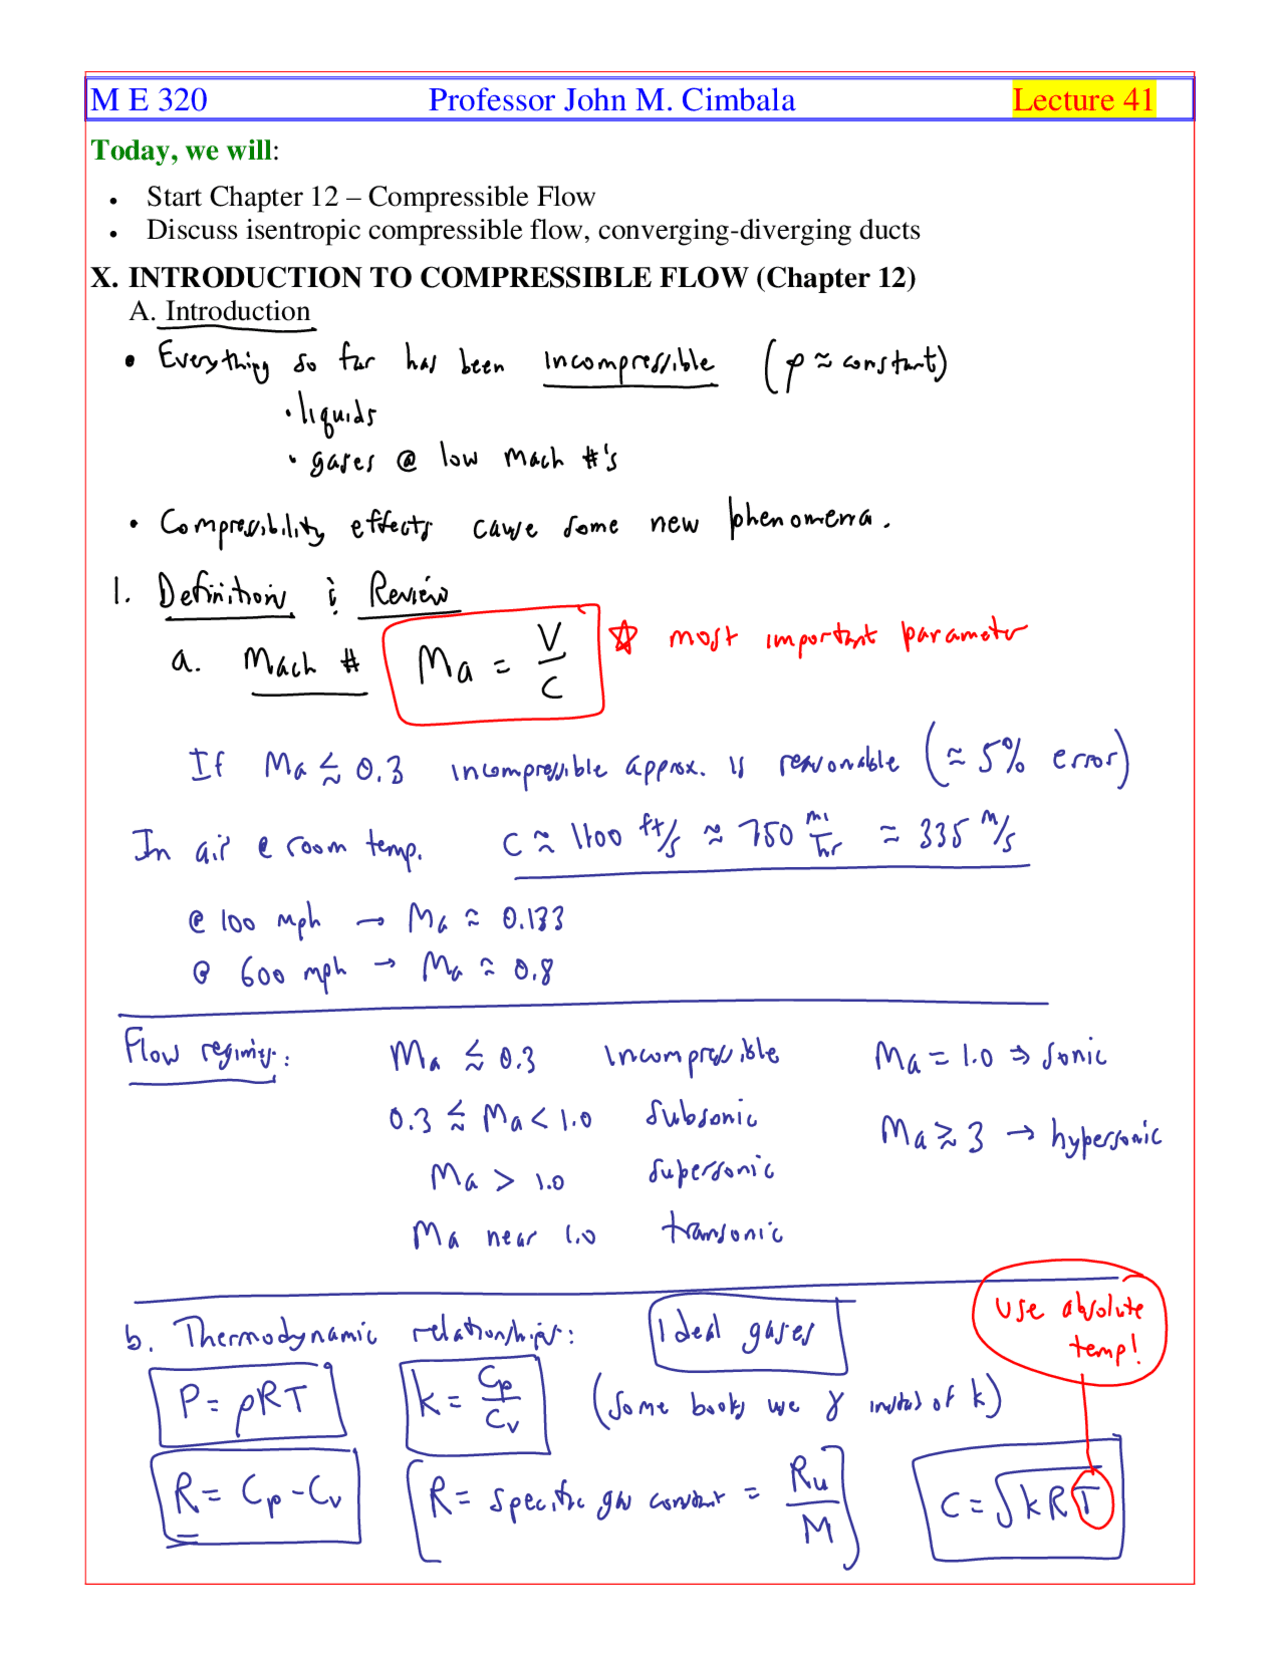 M E 320 Professor John M. Cimbala Lecture 41
Today, we will:
• Start Chapter 12 – Compressible Flow
• Discuss isentropic compressible flow, converging-diverging ducts
X. INTRODUCTION TO COMPRESSIBLE FLOW (Chapter 12)
A. Introduction
• Everything so far has been incompressible (ρ ≈ constant)
• liquids
• gases @ low Mach #'s
• Compressibility effects cause some new phenomena.
1. Definitions & Review
a. Mach # Ma = V/c ☆ most important parameter
If Ma ≲ 0.3 incompressible approx. is reasonable (≈ 5% error)
In air @ room temp. c ≈ 1100 ft/s ≈ 750 mi/hr ≈ 335 m/s
@ 100 mph → Ma ≈ 0.133
@ 600 mph → Ma ≈ 0.8
Flow regimes: Ma ≲ 0.3 incompressible Ma = 1.0 ⇒ sonic
0.3 ≲ Ma < 1.0 subsonic Ma ≳ 3 → hypersonic
Ma > 1.0 supersonic
Ma near 1.0 transonic
use absolute temp!
b. Thermodynamic relationships: Ideal gases
P = ρRT k = Cp/Cv (some books use γ instead of k)
R = Cp - Cv [R = specific gas constant = Ru/M] c = √kRT